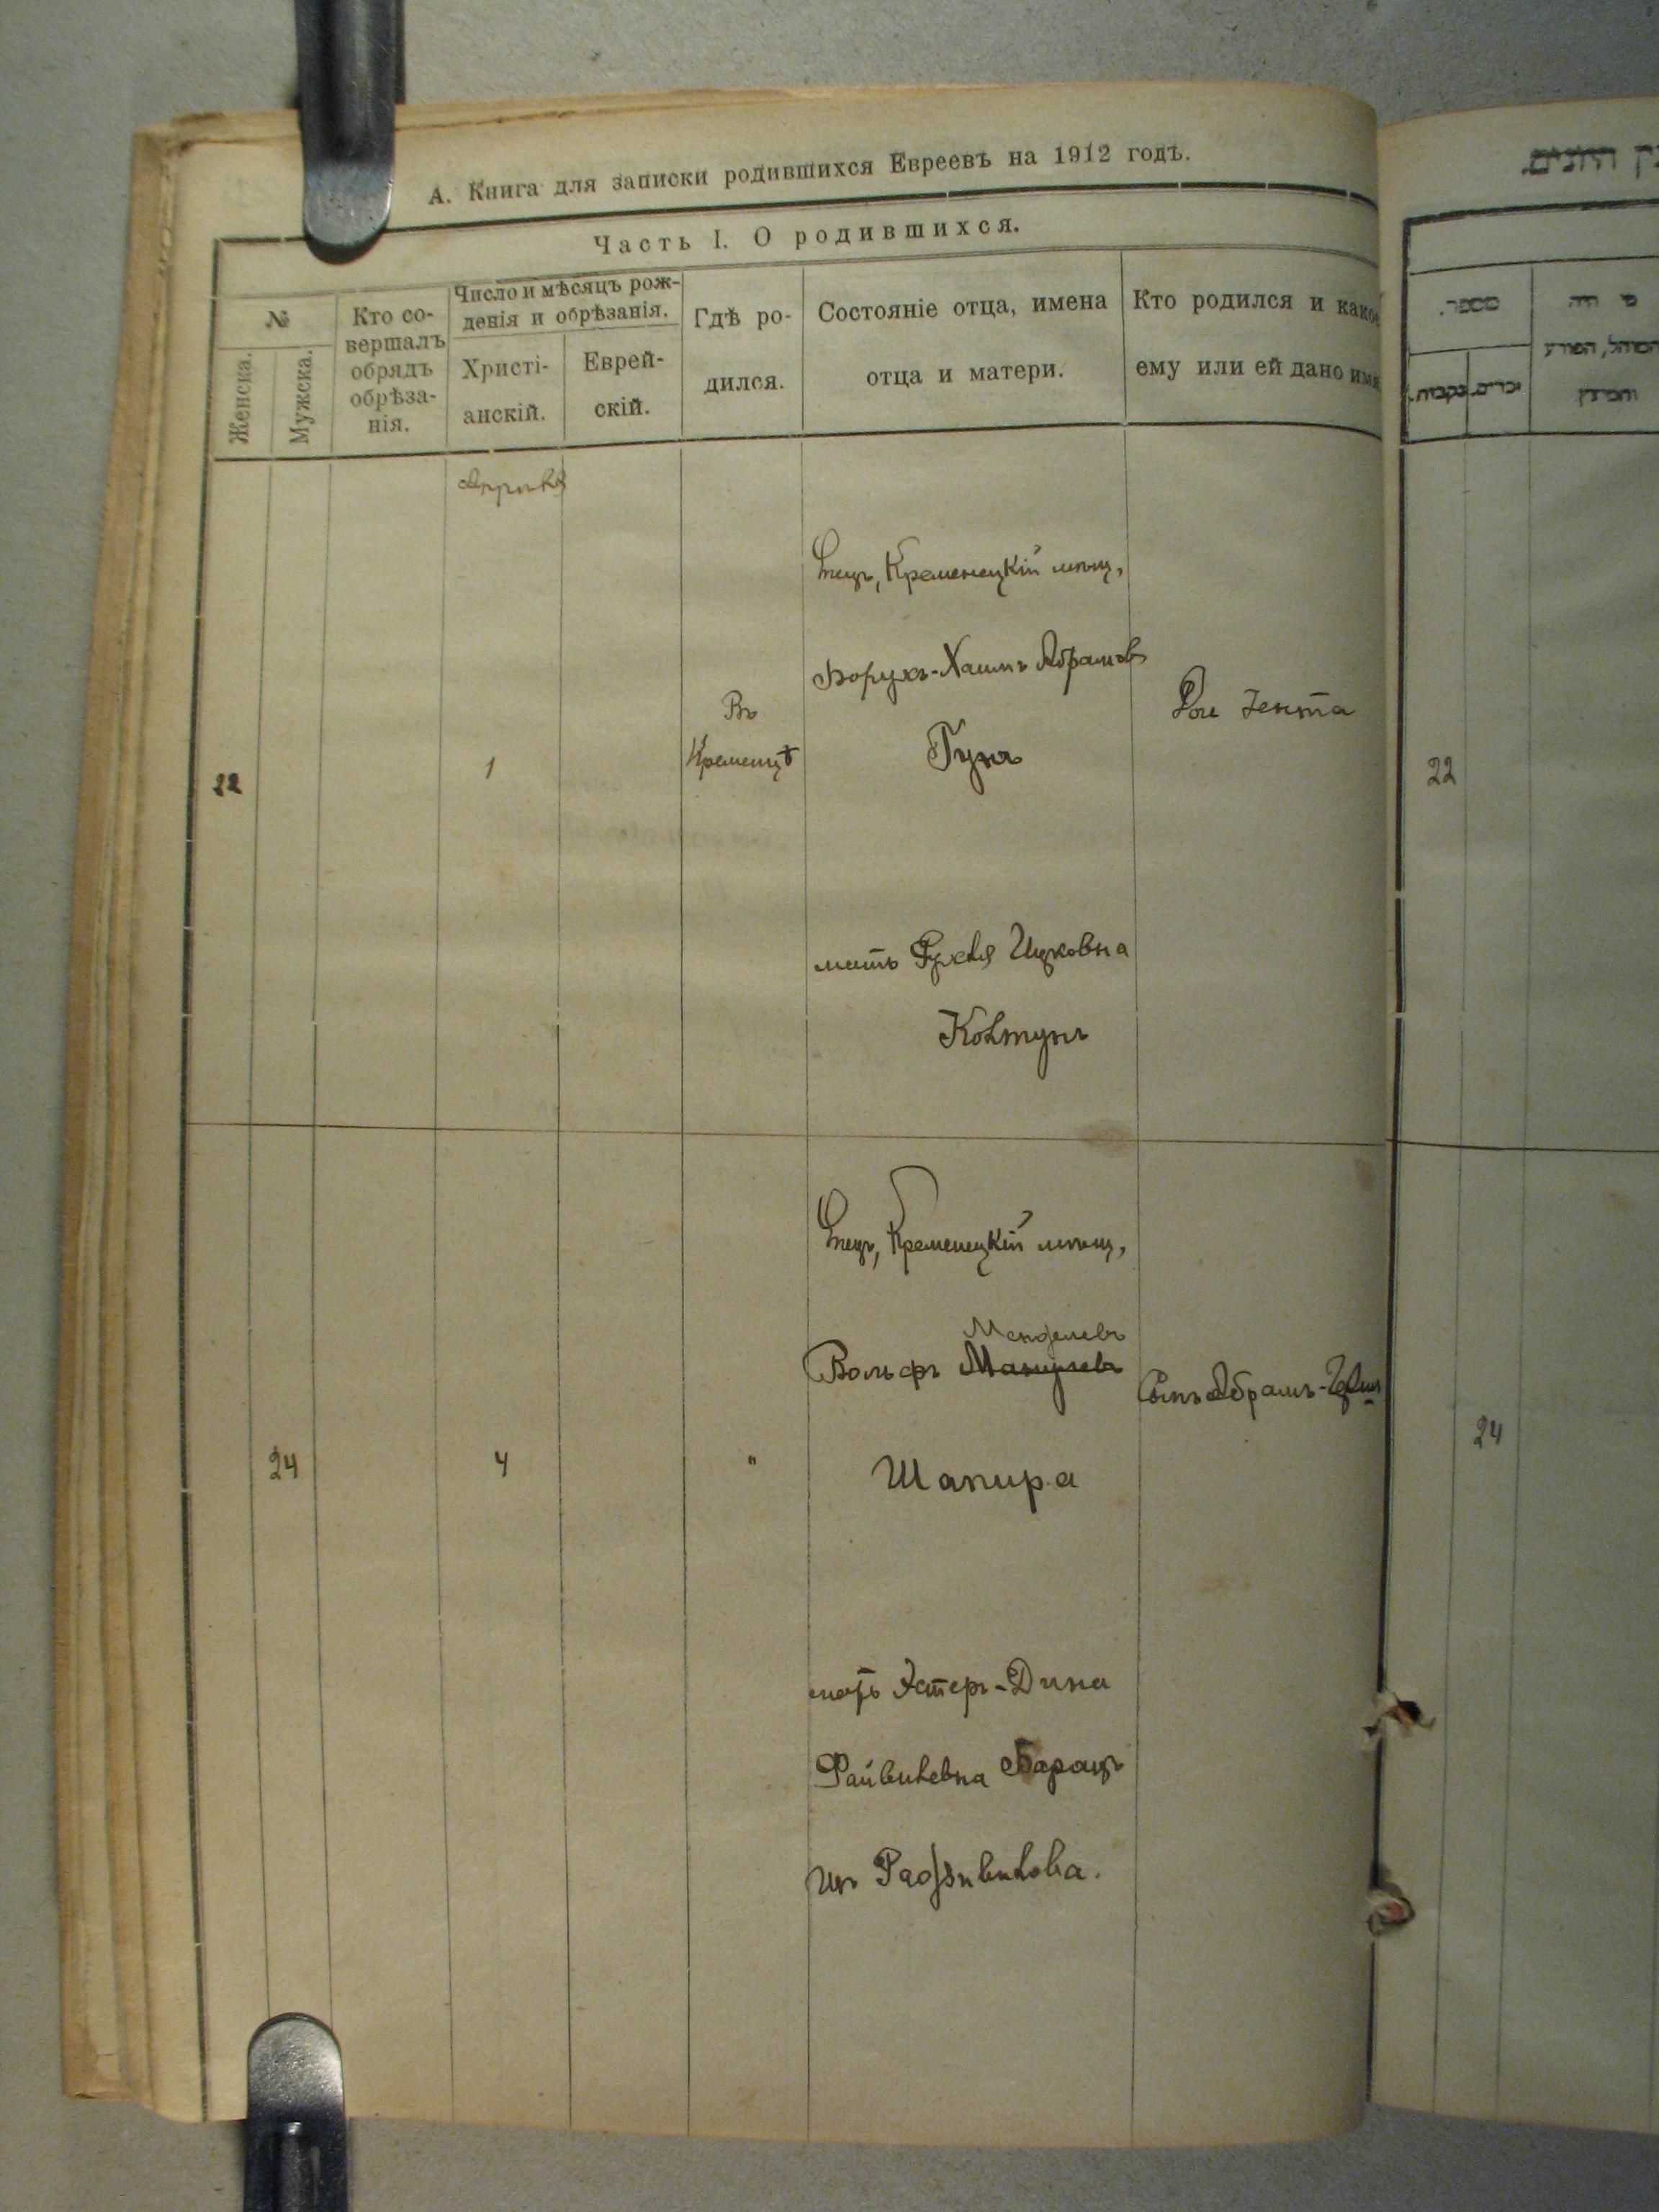 А. Книга для записки родившихся Евреевъ на 1912 годъ.
Часть I. О родившихся.
№
Женска.
Мужска.
Кто со-
вершалъ
обрядъ
обрѣза-
нія.
Число и мѣсяцъ рож-
денія и обрѣзанія.
Христі-
анскій.
Еврей-
скій.
Гдѣ ро-
дился.
Состояніе отца, имена
отца и матери.
Кто родился и како
ему или ей дано имя
Апрѣля
22
1
Въ
Кременцѣ
Отецъ, Кременецкій мѣщ,
Борухъ-Хаимъ Абрамовъ
Гунъ
мать Рухля Ицковна
Ковтунъ
Дочь Зента
24
4
"
Отецъ, Кременецкій мѣщ,
Менделевъ
Вольфъ
Шапира
мать Эстеръ-Дина
Файвилевна Барацъ
изъ Радзивилова.
Сынъ Абрамъ-
מספר.
זכרים.
נקבות.
מי היה
המוהל, הפורע
והמוצץ
22
24